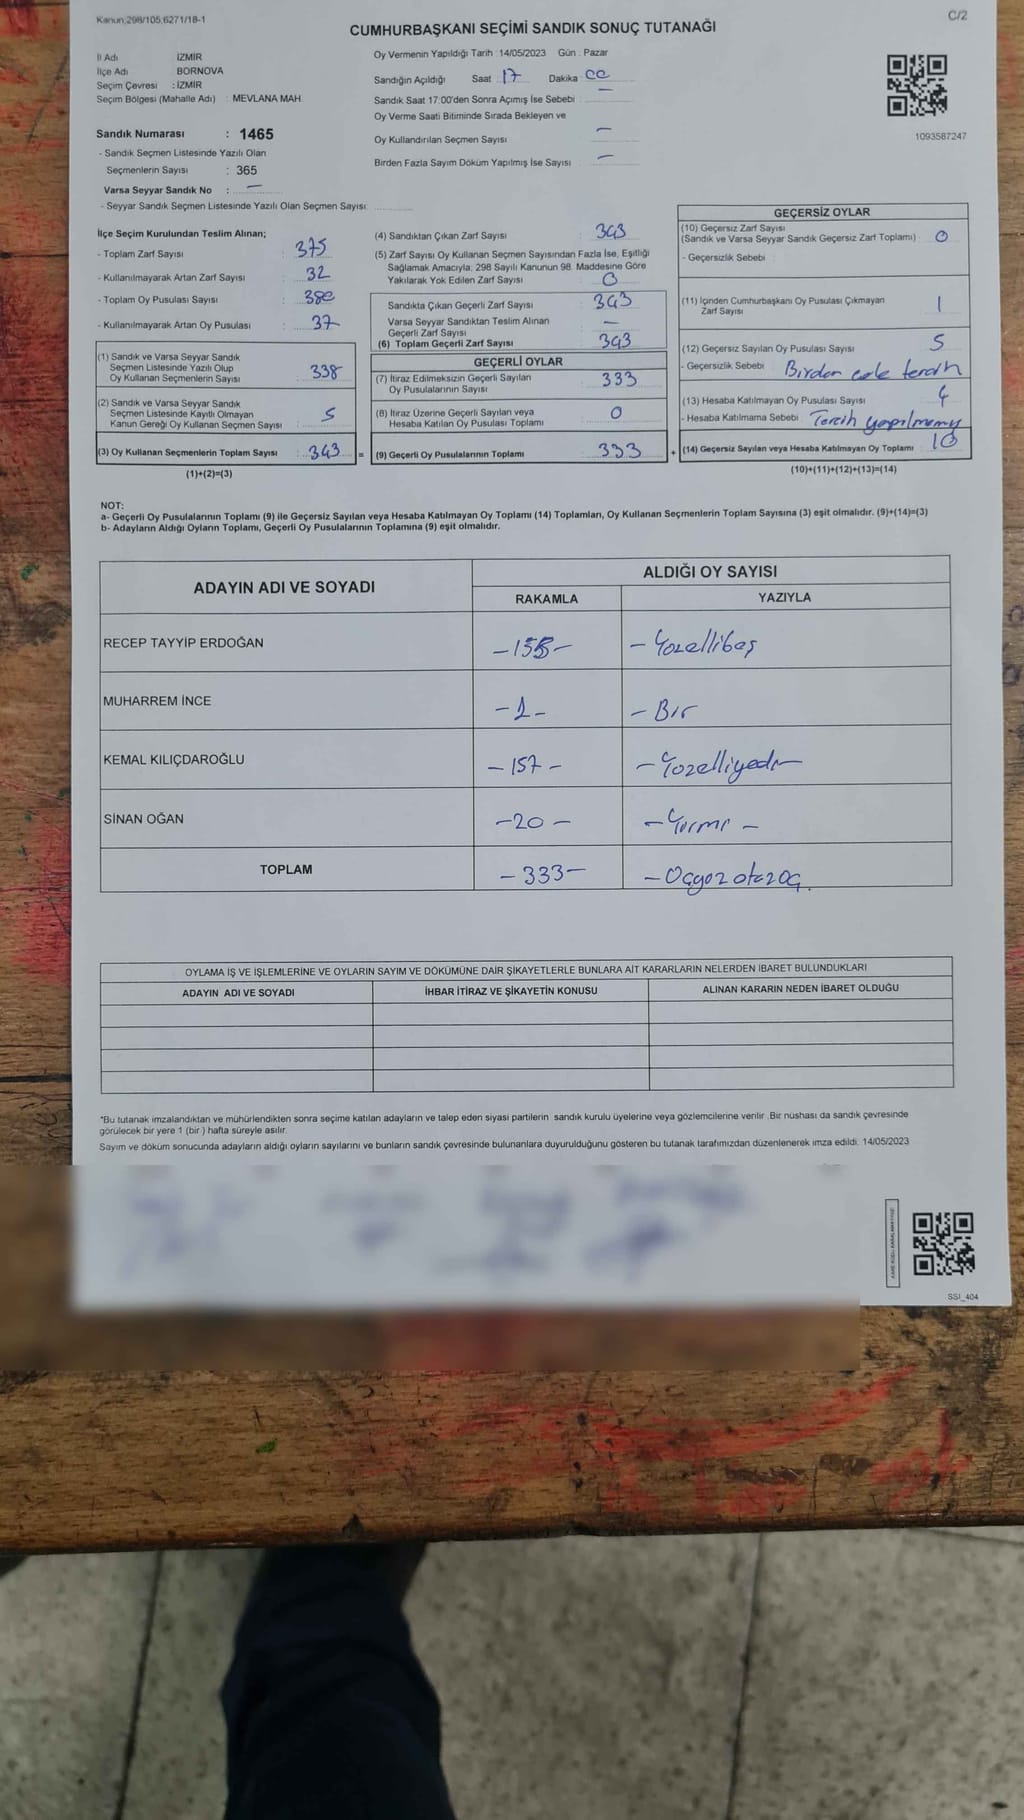 Kanun;298/105,6271/18-1
C/2
CUMHURBAŞKANI SEÇİMİ SANDIK SONUÇ TUTANAĞI
İl Adı İZMİR
İlçe Adı BORNOVA
Seçim Çevresi : İZMİR
Seçim Bölgesi (Mahalle Adı) : MEVLANA MAH.
Oy Vermenin Yapıldığı Tarih :14/05/2023 Gün : Pazar
Sandığın Açıldığı Saat 17 Dakika
Sandık Saat 17:00'den Sonra Açımış İse Sebebi : —
Oy Verme Saati Bitiminde Sırada Bekleyen ve
Oy Kullandırılan Seçmen Sayısı : —
Birden Fazla Sayım Döküm Yapılmış İse Sayısı : —
1093587247
Sandık Numarası : 1465
- Sandık Seçmen Listesinde Yazılı Olan
Seçmenlerin Sayısı : 365
Varsa Seyyar Sandık No : —
- Seyyar Sandık Seçmen Listesinde Yazılı Olan Seçmen Sayısı:
İlçe Seçim Kurulundan Teslim Alınan;
- Toplam Zarf Sayısı : 375
- Kullanılmayarak Artan Zarf Sayısı : 32
- Toplam Oy Pusulası Sayısı : 380
- Kullanılmayarak Artan Oy Pusulası : 37
(1) Sandık ve Varsa Seyyar Sandık
Seçmen Listesinde Yazılı Olup
Oy Kullanan Seçmenlerin Sayısı : 338
(2) Sandık ve Varsa Seyyar Sandık
Seçmen Listesinde Kayıtlı Olmayan
Kanun Gereği Oy Kullanan Seçmen Sayısı : 5
(3) Oy Kullanan Seçmenlerin Toplam Sayısı : 343 =
(1)+(2)=(3)
(4) Sandıktan Çıkan Zarf Sayısı : 343
(5) Zarf Sayısı Oy Kullanan Seçmen Sayısından Fazla İse, Eşitliği
Sağlamak Amacıyla; 298 Sayılı Kanunun 98. Maddesine Göre
Yakılarak Yok Edilen Zarf Sayısı : 0
Sandıkta Çıkan Geçerli Zarf Sayısı : 343
Varsa Seyyar Sandıktan Teslim Alınan
Geçerli Zarf Sayısı : —
(6) Toplam Geçerli Zarf Sayısı : 343
GEÇERLİ OYLAR
(7) İtiraz Edilmeksizin Geçerli Sayılan
Oy Pusulalarının Sayısı : 333
(8) İtiraz Üzerine Geçerli Sayılan veya
Hesaba Katılan Oy Pusulası Toplamı : 0
(9) Geçerli Oy Pusulalarının Toplamı : 333 +
GEÇERSİZ OYLAR
(10) Geçersiz Zarf Sayısı
(Sandık ve Varsa Seyyar Sandık Geçersiz Zarf Toplamı) : 0
- Geçersizlik Sebebi :
(11) İçinden Cumhurbaşkanı Oy Pusulası Çıkmayan
Zarf Sayısı : 1
(12) Geçersiz Sayılan Oy Pusulası Sayısı : 5
- Geçersizlik Sebebi : Birden
(13) Hesaba Katılmayan Oy Pusulası Sayısı : 4
- Hesaba Katılmama Sebebi : Tercih
(14) Geçersiz Sayılan veya Hesaba Katılmayan Oy Toplamı : 10
(10)+(11)+(12)+(13)=(14)
NOT:
a- Geçerli Oy Pusulalarının Toplamı (9) ile Geçersiz Sayılan veya Hesaba Katılmayan Oy Toplamı (14) Toplamları, Oy Kullanan Seçmenlerin Toplam Sayısına (3) eşit olmalıdır. (9)+(14)=(3)
b- Adayların Aldığı Oyların Toplamı, Geçerli Oy Pusulalarının Toplamına (9) eşit olmalıdır.
ADAYIN ADI VE SOYADI
ALDIĞI OY SAYISI
RAKAMLA YAZIYLA
RECEP TAYYİP ERDOĞAN -155- - Yüzellibeş
MUHARREM İNCE -1- - Bir
KEMAL KILIÇDAROĞLU -157- - Yüzelliyedi-
SİNAN OĞAN -20- - Yirmi -
TOPLAM -333- - Üçyüzotuzüç
OYLAMA İŞ VE İŞLEMLERİNE VE OYLARIN SAYIM VE DÖKÜMÜNE DAİR ŞİKAYETLERLE BUNLARA AİT KARARLARIN NELERDEN İBARET BULUNDUKLARI
ADAYIN ADI VE SOYADI İHBAR İTİRAZ VE ŞİKAYETİN KONUSU ALINAN KARARIN NEDEN İBARET OLDUĞU
*Bu tutanak imzalandıktan ve mühürlendikten sonra seçime katılan adayların ve talep eden siyasi partilerin sandık kurulu üyelerine veya gözlemcilerine verilir .Bir nüshası da sandık çevresinde
görülecek bir yere 1 (bir ) hafta süreyle asılır.
Sayım ve döküm sonucunda adayların aldığı oyların sayılarını ve bunların sandık çevresinde bulunanlara duyurulduğunu gösteren bu tutanak tarafımızdan düzenlenerek imza edildi. 14/05/2023
SSI_404